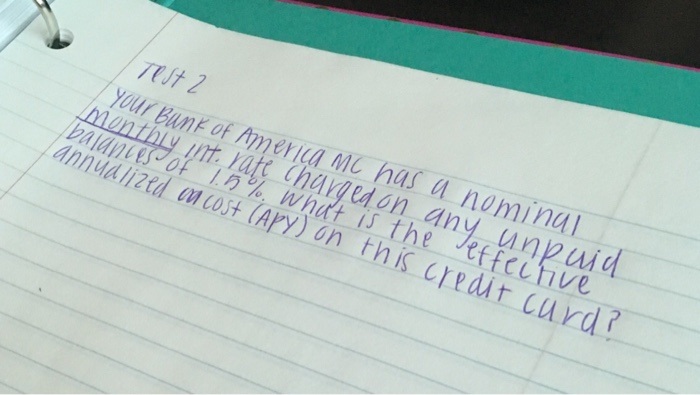 Test 2
Your Bank of America MC has a nominal
monthly int. rate charged on any unpaid
balances of 1.5%. What is the effective
annualized cost (APY) on this credit card?